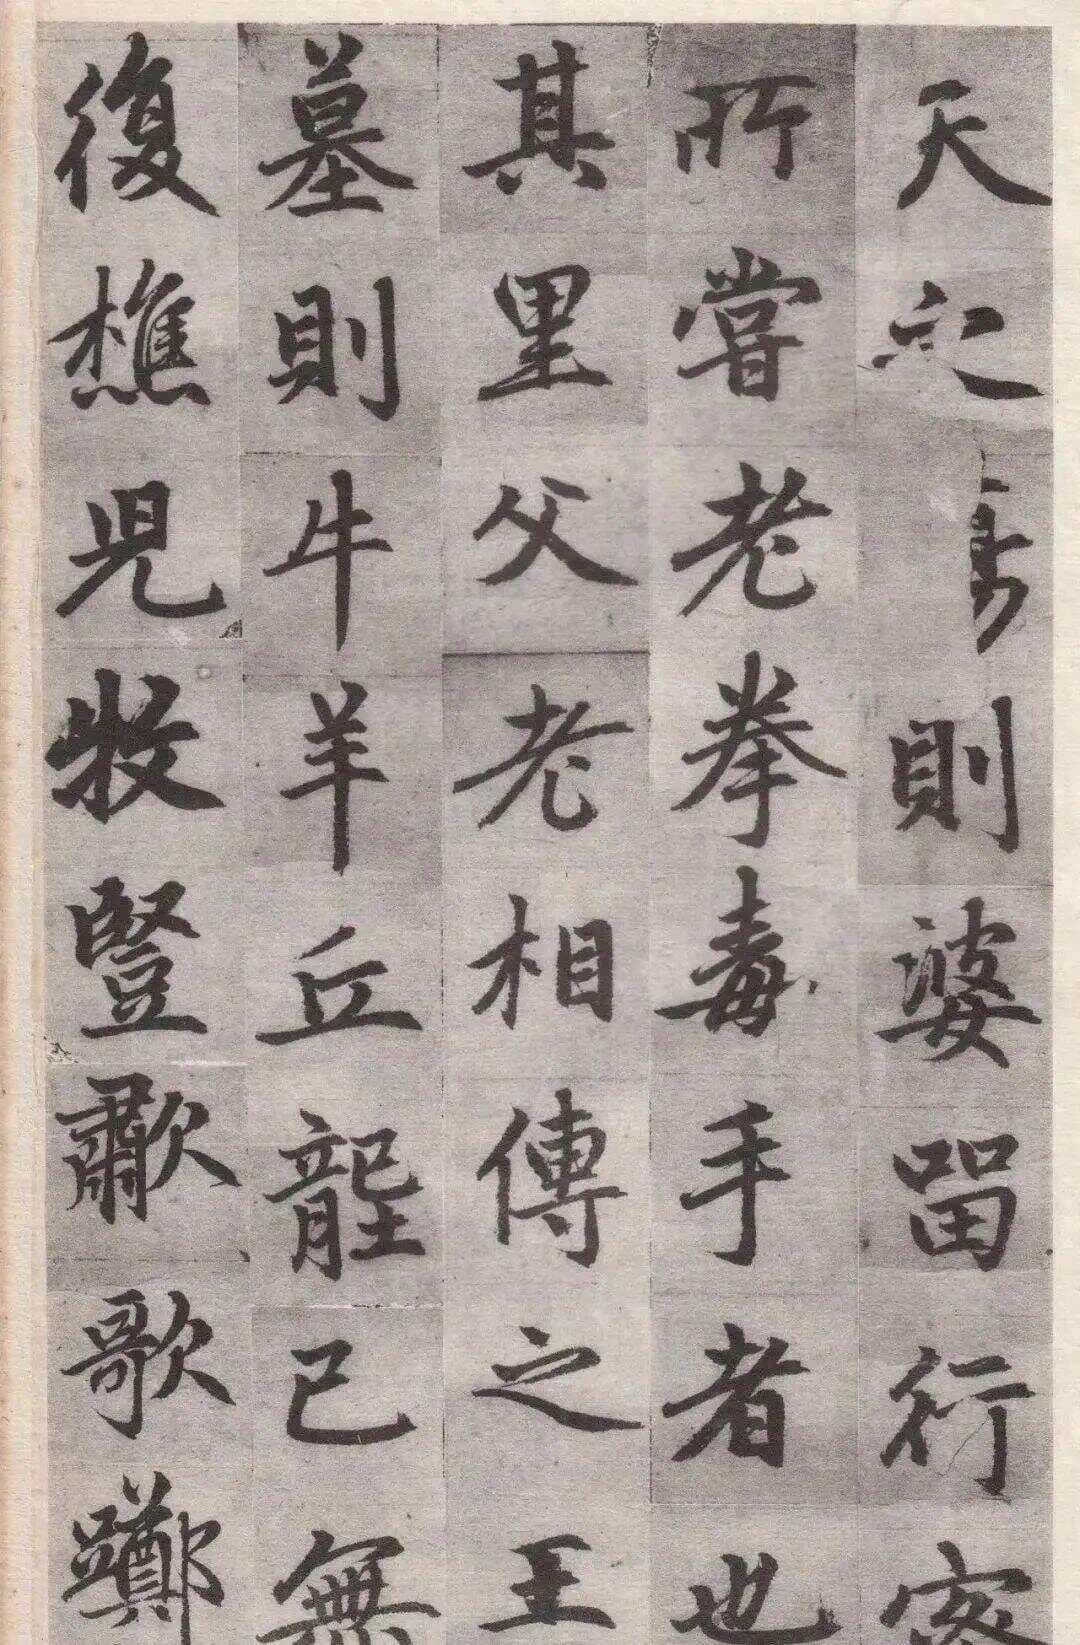 天之則婆留行客
所嘗老拳毒手者也
其里父老相傳之王
墓則牛羊丘壠已無
復樵兒牧豎歗歌躑